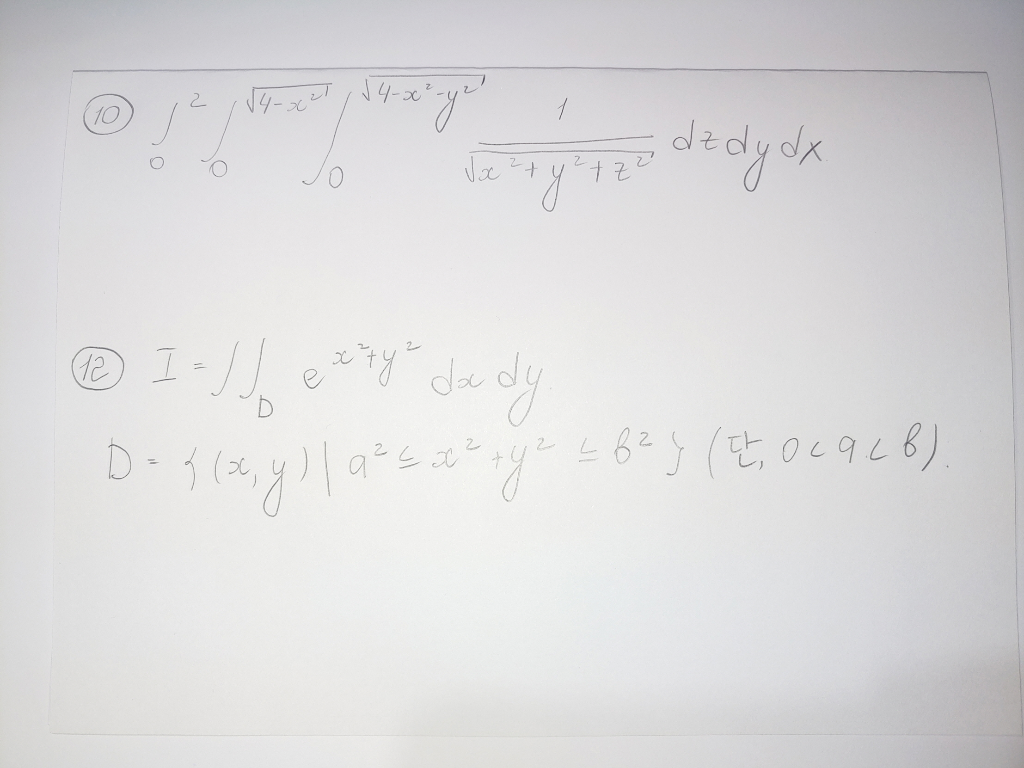 ⑩ ∫₀² ∫₀^√(4-x²) ∫₀^√(4-x²-y²) 1/√(x²+y²+z²) dz dy dx
⑫ I = ∬_D e^(x²+y²) dx dy
D = {(x,y) | a² ≤ x²+y² ≤ b²} (단, 0<a<b).